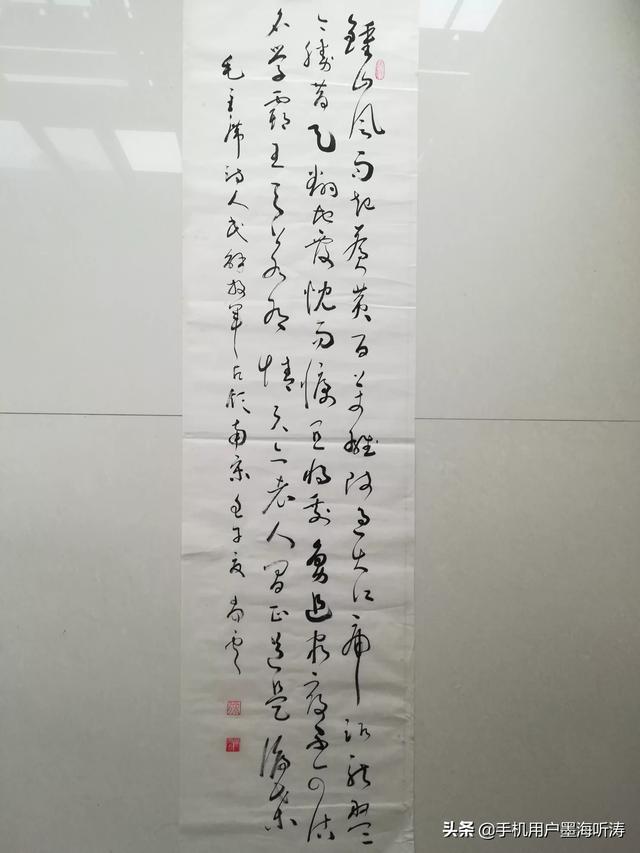 鍾山风雨起苍黄百万雄师过大江虎踞龙盘
今胜昔天翻地覆慨而慷宜将剩勇追穷寇不可沽
名学霸王天若有情天亦老人间正道是沧桑
毛主席诗人民解放军占领南京
头条 @手机用户墨海听涛